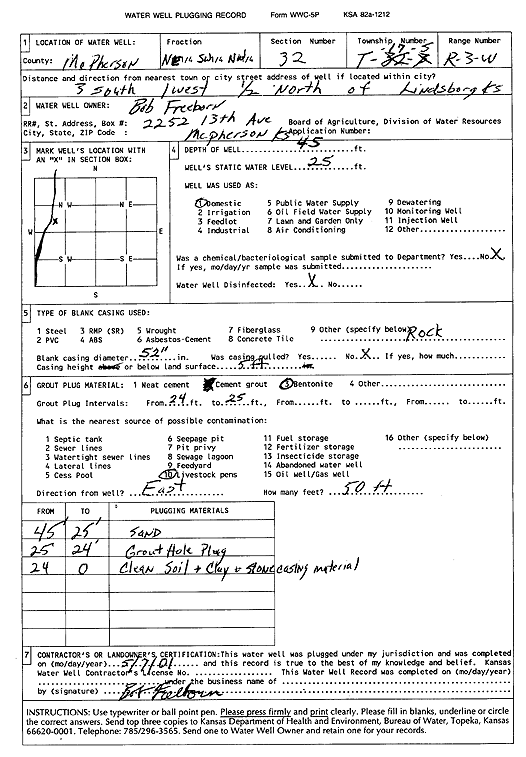 WATER WELL PLUGGING RECORD Form WWC-5P KSA 82a-1212
1 LOCATION OF WATER WELL: Fraction Section Number Township Number Range Number
County: McPherson 32 R-3-W
Distance and direction from nearest town or city street address of well if located within city?
3 South 1 west 1/2 North of Lindsborg Ks
2 WATER WELL OWNER: Bob Freeborn
RR#, St. Address, Box #: 2252 13th Ave Board of Agriculture, Division of Water Resources
City, State, ZIP Code : McPherson Ks Application Number:
3 MARK WELL'S LOCATION WITH AN "X" IN SECTION BOX:
N
N W N E
X
W E
S W S E
S
4 DEPTH OF WELL 45 ft.
WELL'S STATIC WATER LEVEL 25 ft.
WELL WAS USED AS:
1 Domestic 5 Public Water Supply 9 Dewatering
2 Irrigation 6 Oil Field Water Supply 10 Monitoring Well
3 Feedlot 7 Lawn and Garden Only 11 Injection Well
4 Industrial 8 Air Conditioning 12 Other
Was a chemical/bacteriological sample submitted to Department? Yes....No X
If yes, mo/day/yr sample was submitted
Water Well Disinfected: Yes X No
5 TYPE OF BLANK CASING USED:
1 Steel 3 RMP (SR) 5 Wrought 7 Fiberglass 9 Other (specify below) Rock
2 PVC 4 ABS 6 Asbestos-Cement 8 Concrete Tile
Blank casing diameter 52" in. Was casing pulled? Yes...... No X If yes, how much
Casing height above or below land surface 5 ft in.
6 GROUT PLUG MATERIAL: 1 Neat cement 2 Cement grout 3 Bentonite 4 Other
Grout Plug Intervals: From 24 ft. to 25 ft., From...... ft. to ...... ft., From...... to ...... ft.
What is the nearest source of possible contamination:
1 Septic tank 6 Seepage pit 11 Fuel storage 16 Other (specify below)
2 Sewer lines 7 Pit privy 12 Fertilizer storage
3 Watertight sewer lines 8 Sewage lagoon 13 Insecticide storage
4 Lateral lines 9 Feedyard 14 Abandoned water well
5 Cess Pool 10 Livestock pens 15 Oil well/Gas well
Direction from well? East How many feet? 50 ft
FROM TO PLUGGING MATERIALS
45' 25' SAND
25' 24' Grout Hole Plug
24 0 Clean Soil + Clay + stone casing material
7 CONTRACTOR'S OR LANDOWNER'S CERTIFICATION: This water well was plugged under my jurisdiction and was completed
on (mo/day/year) 5/7/01 and this record is true to the best of my knowledge and belief. Kansas
Water Well Contractor's License No. This Water Well Record was completed on (mo/day/year)
under the business name of
by (signature)
INSTRUCTIONS: Use typewriter or ball point pen. Please press firmly and print clearly. Please fill in blanks, underline or circle
the correct answers. Send top three copies to Kansas Department of Health and Environment, Bureau of Water, Topeka, Kansas
66620-0001. Telephone: 785/296-3565. Send one to Water Well Owner and retain one for your records.